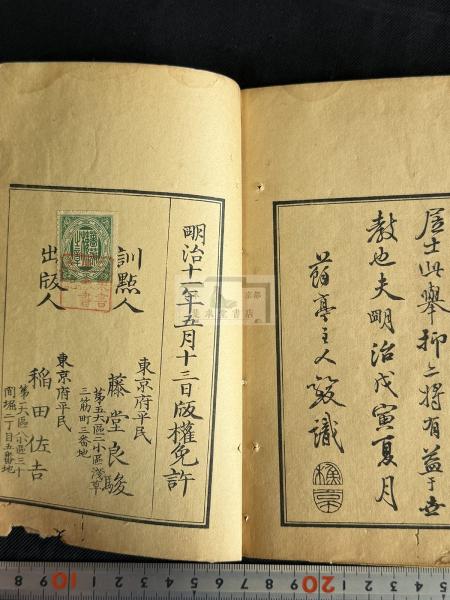 居士此舉抑亦將有益于世
教也夫明治戊寅夏月
主人 識
明治十一年五月十三日版權免許
訓點人
東京府平民
第五大區二小區淺草
三筋町三番地
藤堂良駿
出版人
東京府平民
第一大區八小區三十
間堀二丁目五番地
稲田佐吉
9 8 9 10 1 2 3 4 5 6 7 8 9 20 1 2 3 4